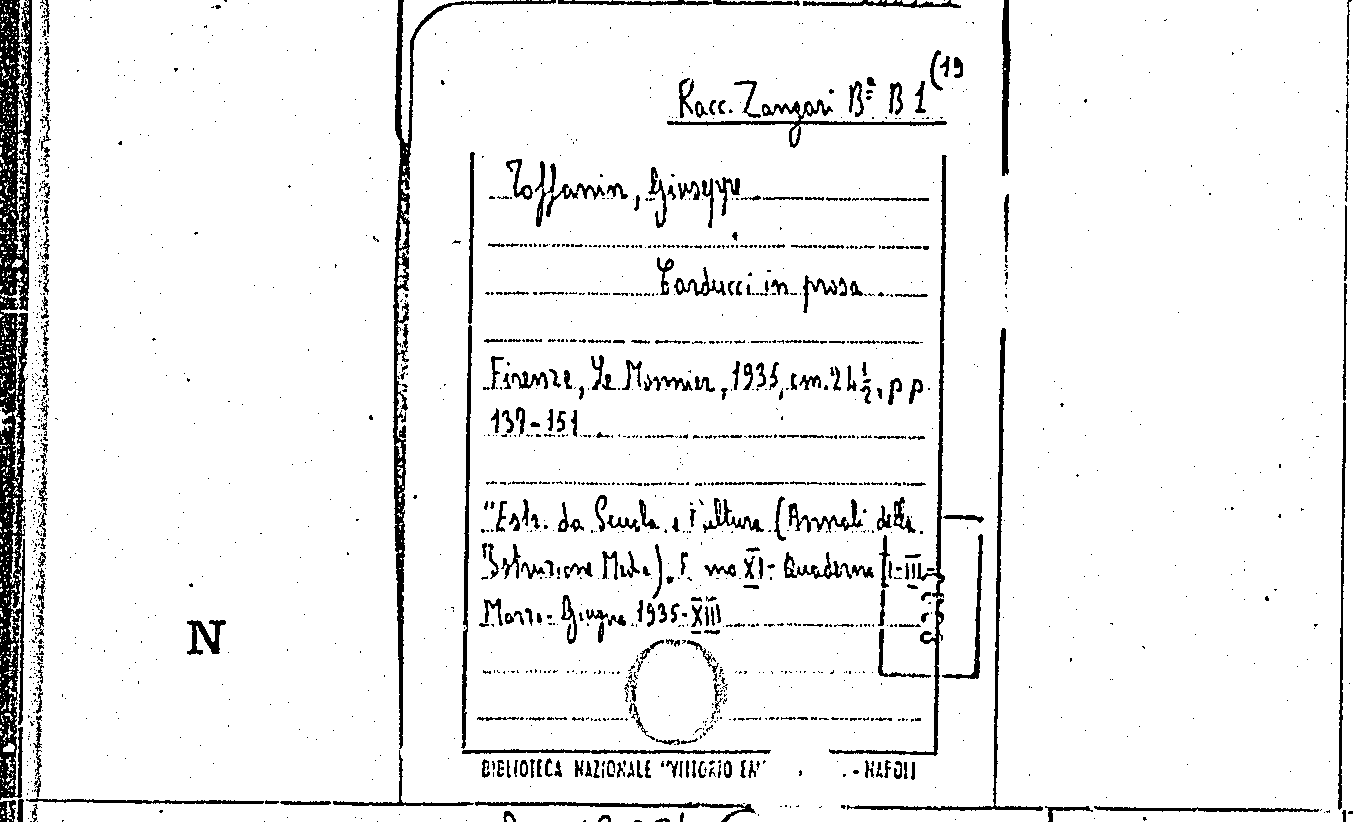 Racc. Zangari Bª B 1 (19
Toffanin, Giuseppe
Carducci in prosa.
Firenze, Le Monnier, 1935, cm. 24 ½, pp.
137-151.
"Estr. da Scuola e Cultura (Annali della
Istruzione Media). XI - Quaderno I-III
Marzo - Giugno 1935-XIII
N
BIBLIOTECA NAZIONALE "VITTORIO EM - NAPOLI